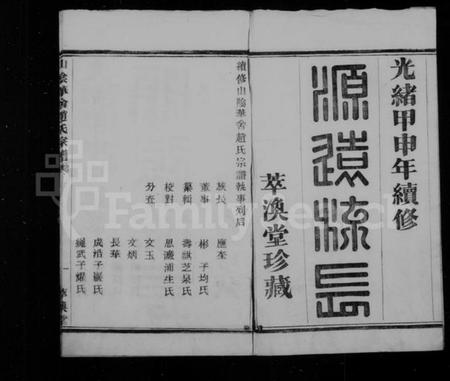 光緒甲申年續修
源遠流長
萃渙堂珍藏
續修山陰華舍趙氏宗譜執事列后
族長 應奎
董事 彬子均氏
纂輯 壽祺芝泉氏
校對 思瀛浦生氏
分查 文玉
文炳
長華
成浩子嶽氏
繩武子耀氏
山陰華舍趙氏宗譜
一
萃渙堂
FamilySearch